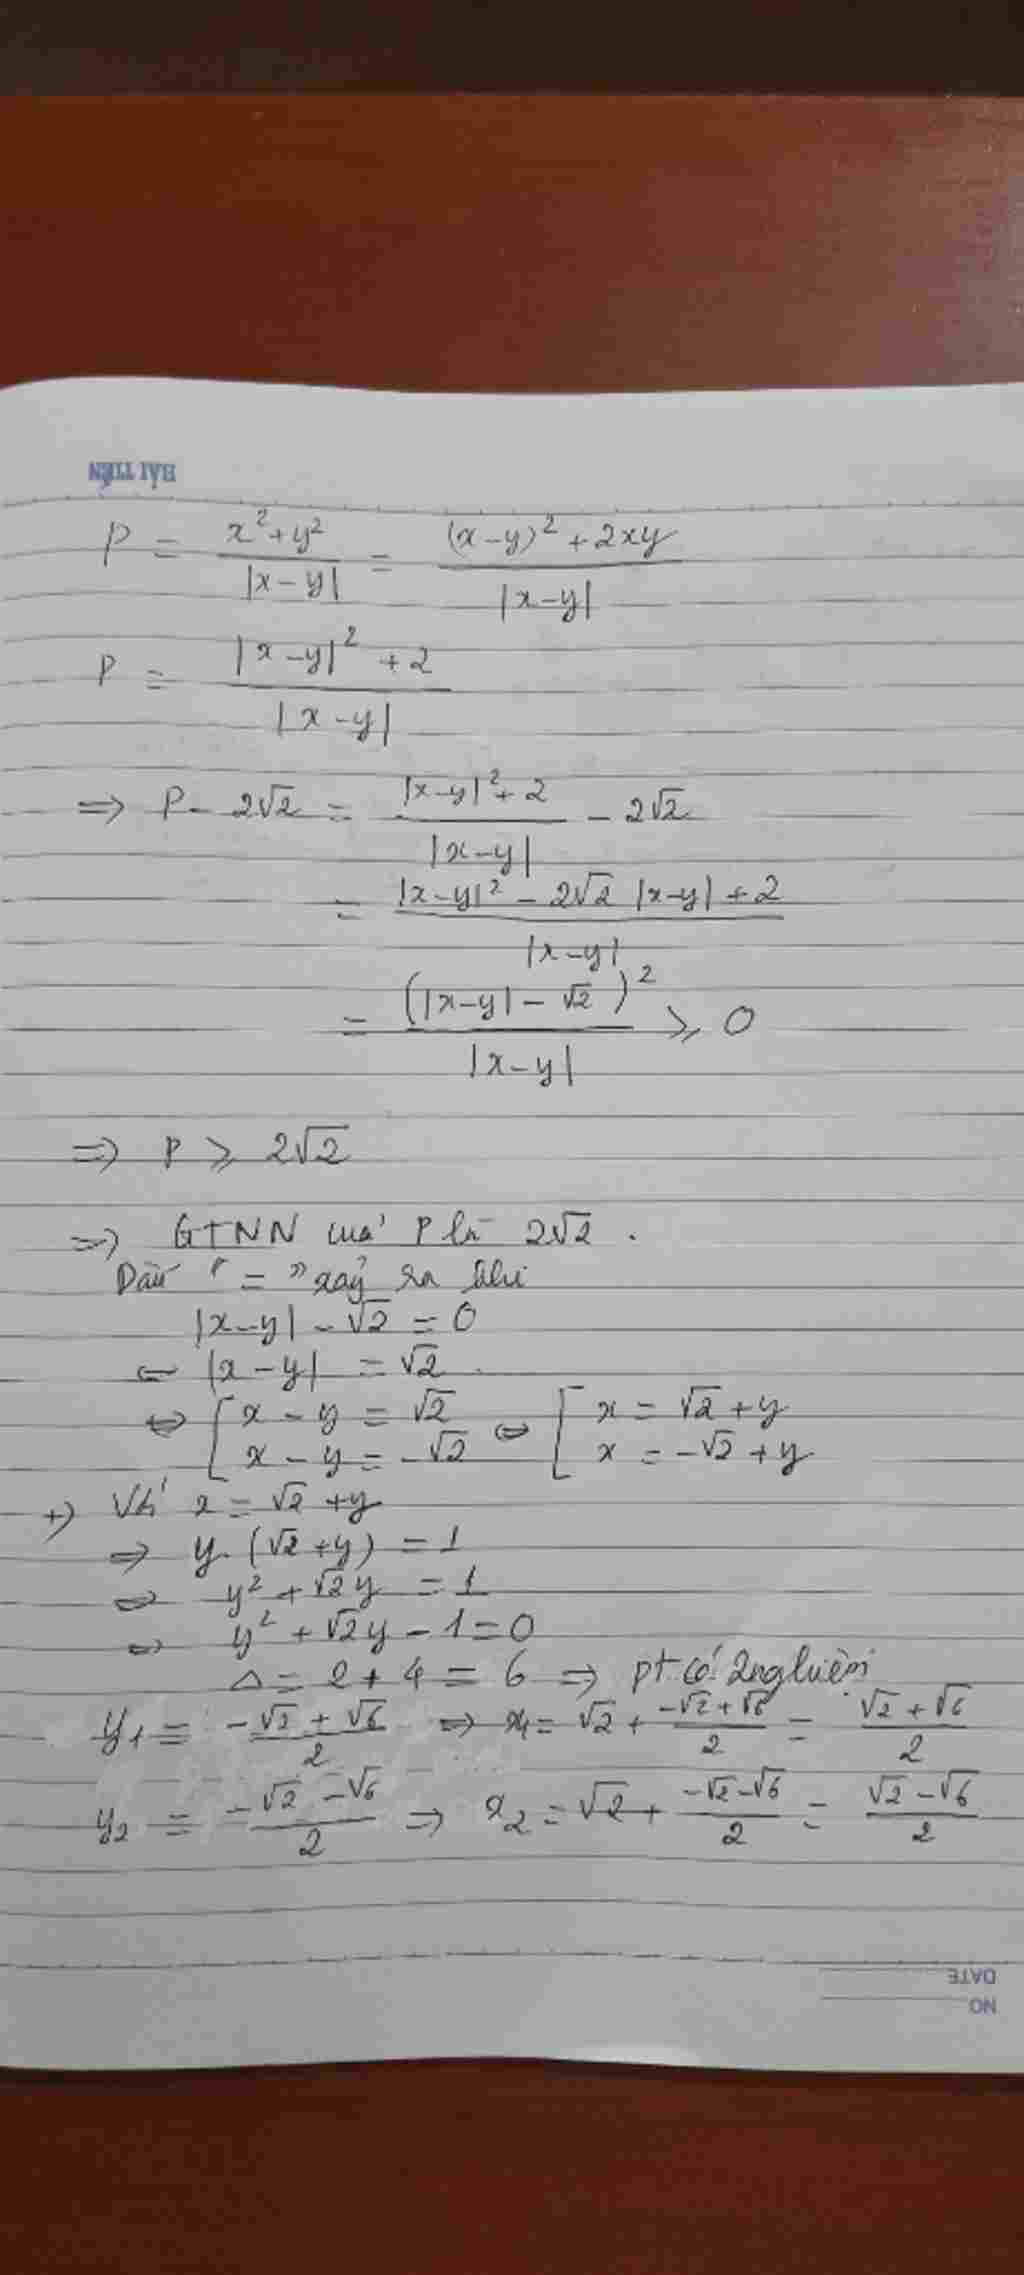 HẢI TIẾN
P = \frac{x^2+y^2}{|x-y|} = \frac{(x-y)^2+2xy}{|x-y|}
P = \frac{|x-y|^2+2}{|x-y|}
=> P - 2√2 = \frac{|x-y|^2+2}{|x-y|} - 2√2
= \frac{|x-y|^2 - 2√2 |x-y| + 2}{|x-y|}
= \frac{(|x-y| - √2)^2}{|x-y|} ≥ 0
=> P ≥ 2√2
=> GTNN của P là 2√2 .
Dấu "=" xảy ra khi
|x-y| - √2 = 0
⇔ |x-y| = √2 .
⇔ [ x - y = √2 ; x - y = -√2 ⇔ [ x = √2 + y ; x = -√2 + y
+) Với x = √2 + y
=> y. (√2 + y) = 1
⇔ y² + √2y = 1
⇔ y² + √2y - 1 = 0
Δ = 2 + 4 = 6 => pt có 2 nghiệm
y₁ = \frac{-√2 + √6}{2} => x₁ = √2 + \frac{-√2 + √6}{2} = \frac{√2 + √6}{2}
y₂ = \frac{-√2 - √6}{2} => x₂ = √2 + \frac{-√2 - √6}{2} = \frac{√2 - √6}{2}
DATE
NO